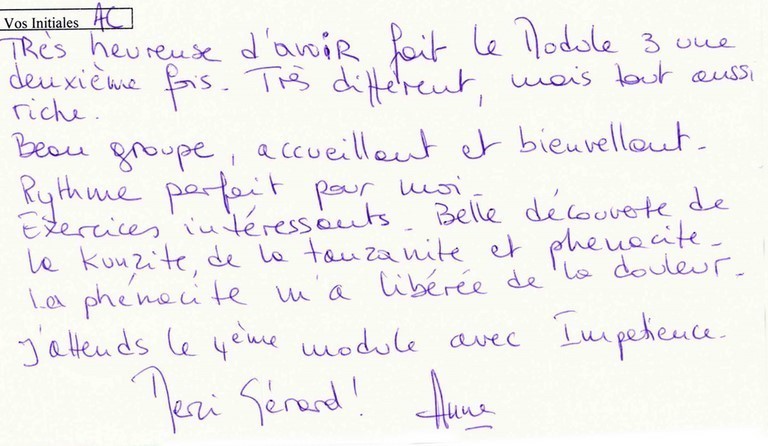 Vos Initiales AC
Très heureuse d'avoir fait le Module 3 une
deuxième fois. Très différent, mais tout aussi
riche.
Beau groupe, accueillant et bienvellant.
Rythme parfait pour moi.
Exercices intéressants. Belle découverte de
la Kunzite, de la tanzanite et phenacite.
La phénacite m'a libérée de la douleur.
J'attends le 4ème module avec Impatience.
Merci Gérard! Anne